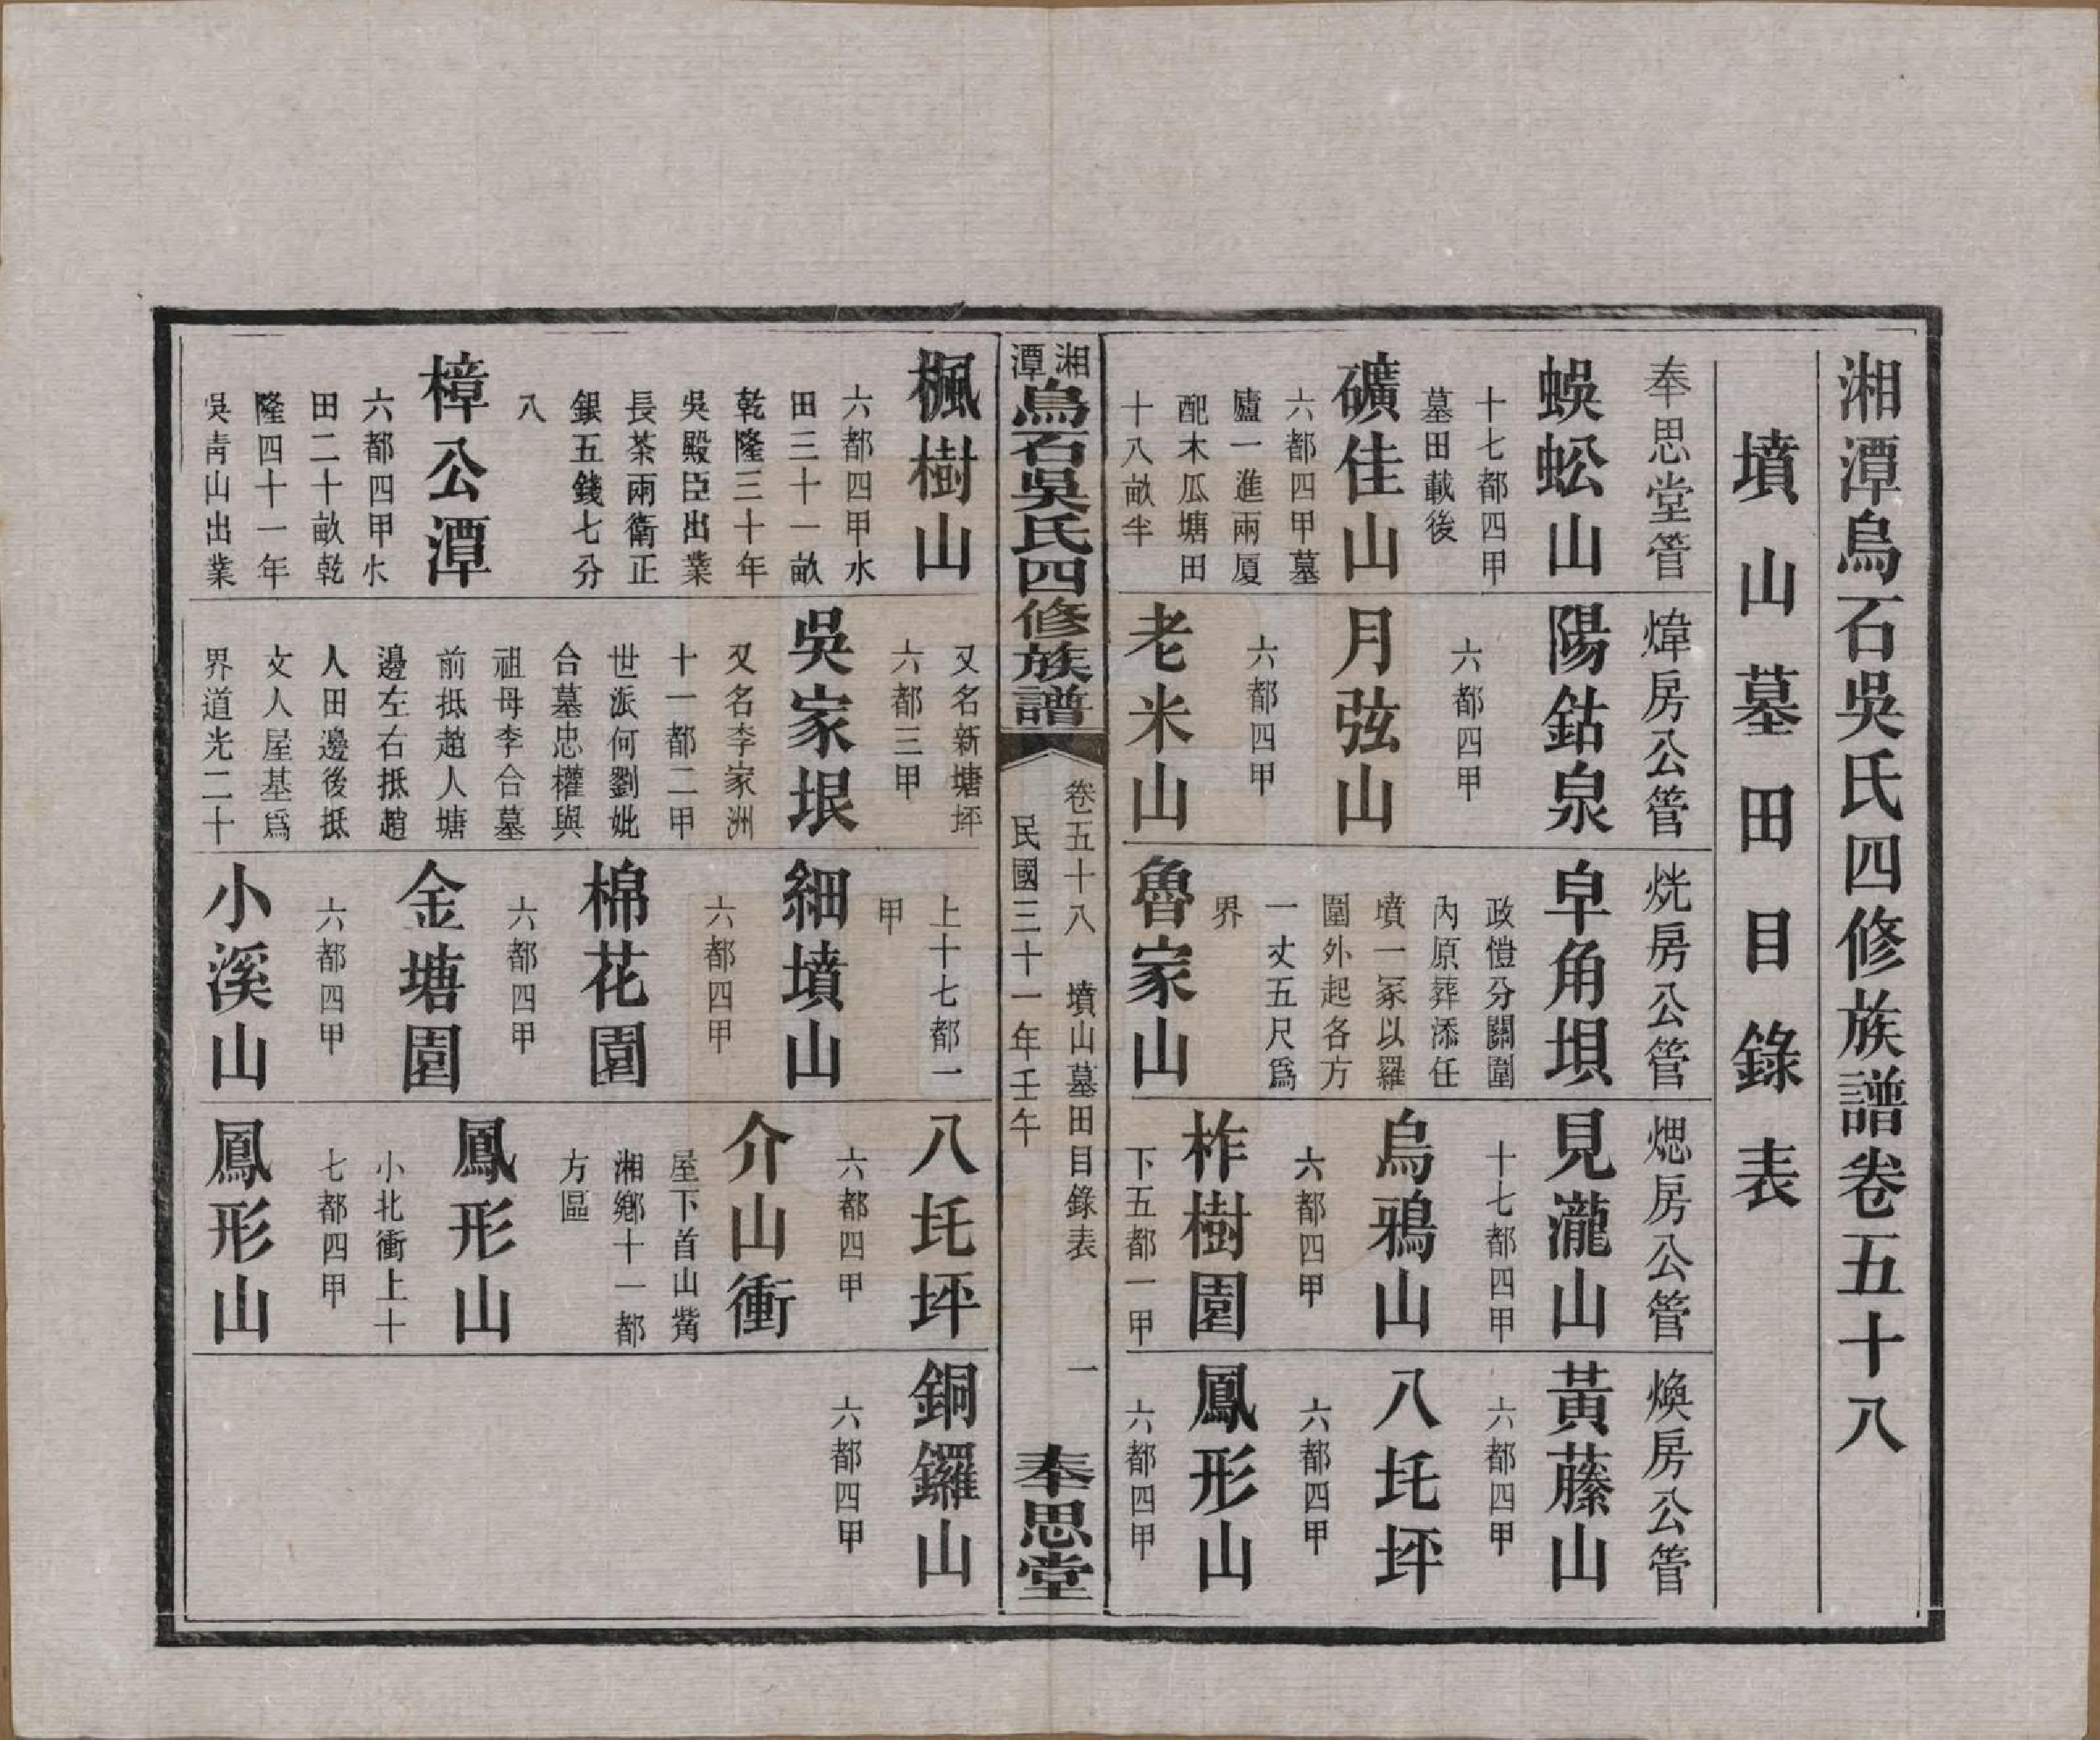 湘潭烏石吳氏四修族譜卷五十八
墳山墓田目錄表
奉思堂管
蜈蚣山
十七都四甲
墓田載後
礦佳山
六都四甲墓
廬一進兩厦
配木瓜塘田
十八畝半
煒房公管
陽鈷泉
六都四甲
月弦山
六都四甲
老米山
烍房公管
皁角垻
政愷分關圍
內原葬添任
墳一冢以羅
圍外起各方
一丈五尺爲
界
魯家山
煾房公管
見瀧山
十七都四甲
烏鴉山
六都四甲
柞樹園
下五都一甲
煥房公管
黃藤山
六都四甲
八圫坪
六都四甲
鳳形山
六都四甲
湘潭烏石吳氏四修族譜
卷五十八 墳山墓田目錄表 一
民國三十一年壬午
奉思堂
楓樹山
六都四甲水
田三十一畝
乾隆三十年
吳殿臣出業
長茶兩衛正
銀五錢七分
八
樟公潭
六都四甲水
田二十畝乾
隆四十一年
吳靑山出業
又名新塘坪
六都三甲
吳家垠
又名李家洲
十一都二甲
世派何劉妣
合墓忠權與
祖母李合墓
前抵趙人塘
邊左右抵趙
人田邊後抵
文人屋基爲
界道光二十
上十七都一
甲
細墳山
六都四甲
棉花園
六都四甲
金塘園
六都四甲
小溪山
八圫坪
六都四甲
介山衝
屋下首山觜
湘鄉十一都
方區
鳳形山
小北衝上十
七都四甲
鳳形山
銅鑼山
六都四甲